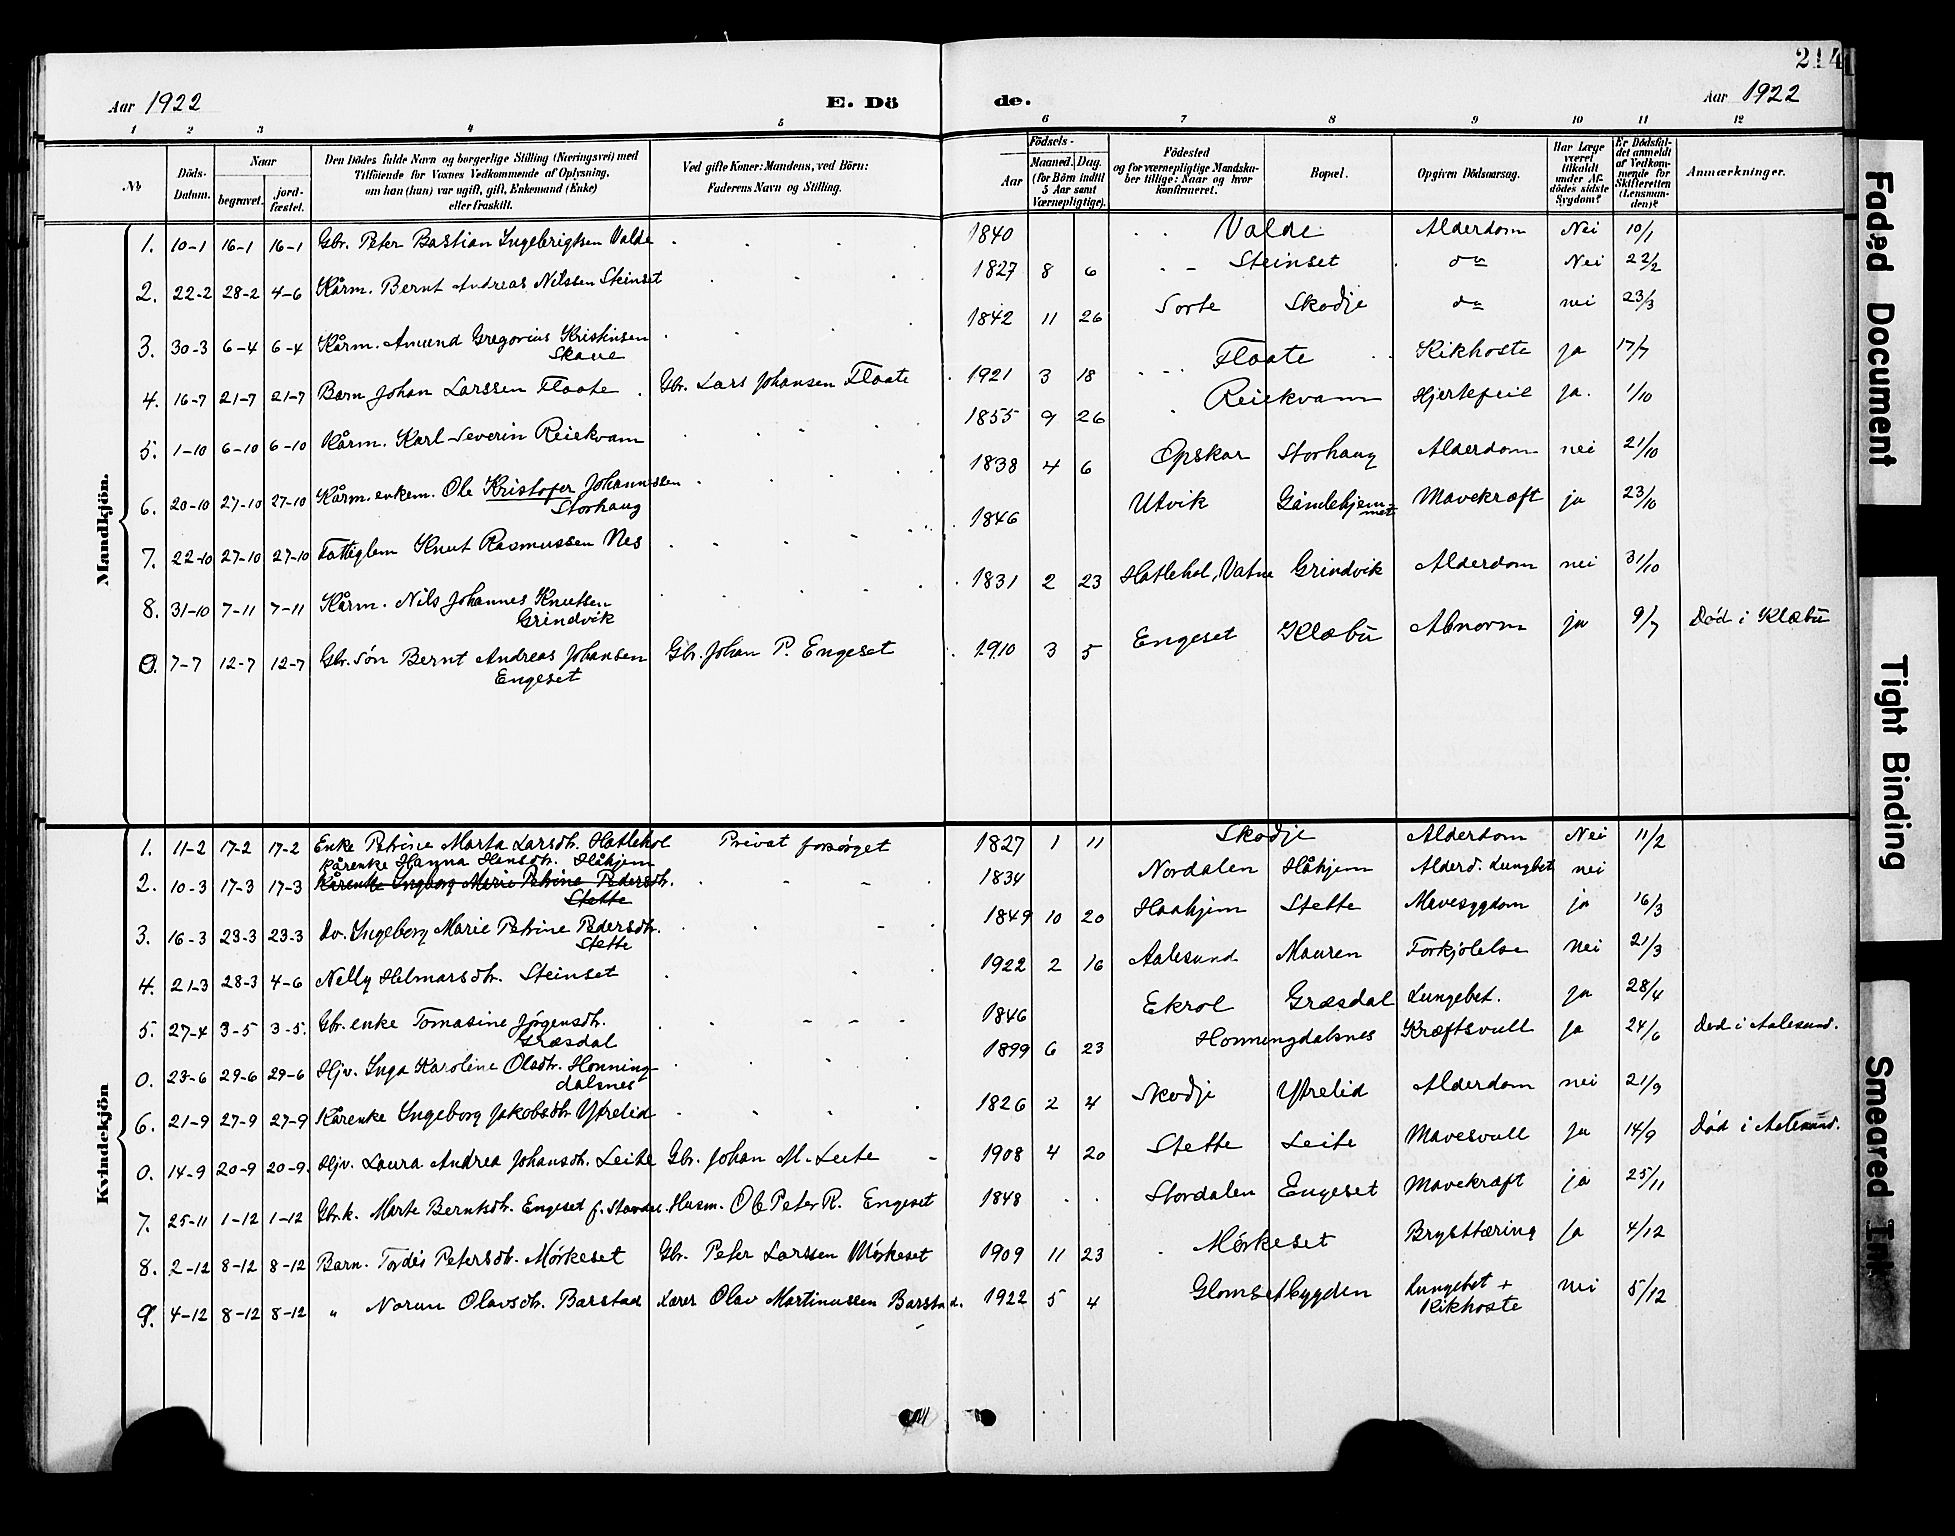 214
Aar 1922 E. Dö de. Aar 1922
1 2 3 4 5 6 7 8 9 10 11 12
No
Döds-
Datum.
Naar
begravet.
jord-
fæstet.
Den Dödes fulde Navn og borgerlige Stilling (Næringsvei) med
Tilföiende for Voxnes Vedkommende af Oplysning,
om han (hun) var ugift, gift, Enkemand (Enke)
eller fraskilt.
Ved gifte Koner: Mandens, ved Börn:
Faderens Navn og Stilling.
Födsels-
Aar
Maaned. Dag.
(for Börn indtil
5 Aar samt
Værnepligtige).
Födested
og for værnepligtige Mandska-
ber tillige: Naar og hvor
konfirmeret.
Bopæl.
Opgiven Dödsaarsag.
Har Læge
været
tilkaldt
under Af-
dödes sidste
Sygdom?
Er Dödsfal-
det anmeldt
af Vedkom-
mende for
Skifteretten
(Lensman-
den)?
Anmærkninger.
Mandkjön.
1. 10-1 16-1 16-1 Gbr. Peter Bastian Ingebrigtsen Valde 1840 Valde Alderdom Nei 10/1
2. 22-2 28-2 4-6 Kårm. Bernt Andreas Nilssen Steinset 1827 8 6 Steinset do Nei 22/2
3. 30-3 6-4 6-4 Kårm. Amund Gregorius Kristinsen 1842 11 26 Sorte Skodje do nei 23/3
Skaue
4. 16-7 21-7 21-7 Barn Johan Larssen Flaate Gbr. Lars Johansen Flaate 1921 3 18 Flaate Kikhoste ja 17/7
5. 1-10 6-10 6-10 Kårm. Karl Severin Reiekvam 1855 9 26 Reiekvam Hjertefeil ja. 1/10
6. 20-10 27-10 27-10 Kårm. enkem. Ole Kristofer Johannessen 1838 4 6 Opskar Storhaug Alderdom nei 21/10
Storhaug
7. 22-10 27-10 27-10 Fattiglem Knut Rasmussen Nes 1846 Utvik Gamlehjem-
met Mavekræft ja 23/10
8. 31-10 7-11 7-11 Kårm. Nils Johannes Knutsen 1831 2 23 Hatlehol, Vatne Grindvik Alderdom nei 31/10
Grindvik
0. 7-7 12-7 12-7 Gbr. søn Bernt Andreas Johansen Gbr. Johan P. Engeset 1910 3 5 Engeset Klæbu Abnorm ja 9/7 Død i Klæbu
Engeset
Kvindekjön
1. 11-2 17-2 17-2 Enke Petrine Marta Larsdtr. Hatlehol Privat forsørget 1827 1 11 Skodje Alderdom Nei 11/2
Kårenke Hanna Hensdtr. Håhjem
2. 10-3 17-3 17-3 Kårenke Ingeborg Marie Petrine Pedersdtr. 1834 Nordalen Håhjem Alderd. Lungbet nei
Stette
3. 16-3 23-3 23-3 do. Ingeborg Marie Petrine Pedersdtr. 1849 10 20 Haahjem Stette Mavesygdom ja 16/3
Stette
4. 21-3 28-3 4-6 Nelly Helmarsdtr. Steinset 1922 2 16 Aalesund Mauren Forkjølelse nei 21/3
5. 27-4 3-5 3-5. Gbr. enke Tomasine Jørgensdtr. 1846 Ekrol Græsdal Lungebet. ja 28/4
Græsdal
0. 23-6 29-6 29-6 Hjv. Inga Karoline Olsdtr. Honning- 1899 6 23 Honningdalsnes Kræftsvull ja 24/6 død i Aalesund.
dalsnes
6. 21-9 27-9 27-9 Kårenke Ingeborg Jakobsdtr Ytrelid 1826 2 4 Skodje Ytrelid Alderdom nei 21/9
0. 14-9 20-9 20-9. Hjv. Laura Andrea Johansdtr. Leite Gbr. Johan M. Leite 1908 4 20 Stette Leite Mavesvull ja 14/9 Død i Aalesund.
7. 25-11 1-12 1-12 Gbr.k. Marte Berntsdtr. Engeset f. Stordal. Husm. Ole Peter R. Engeset 1848 Stordalen Engeset Mavekræft ja 25/11
8. 2-12 8-12 8-12 Barn. Tordis Petersdtr. Mørkeset Gbr. Peter Larssen Mørkeset 1909 11 23 Mørkeset Brysttæring ja 4/12
9. 4-12 8-12 8-12 " Norun Olavsdtr. Barstad Lærer Olav Martinussen Barstad. 1922 5 4 Glomsetbygden Lungebet + nei 5/12
Kikhoste
Faded Document
Tight Binding
Smeared Ink